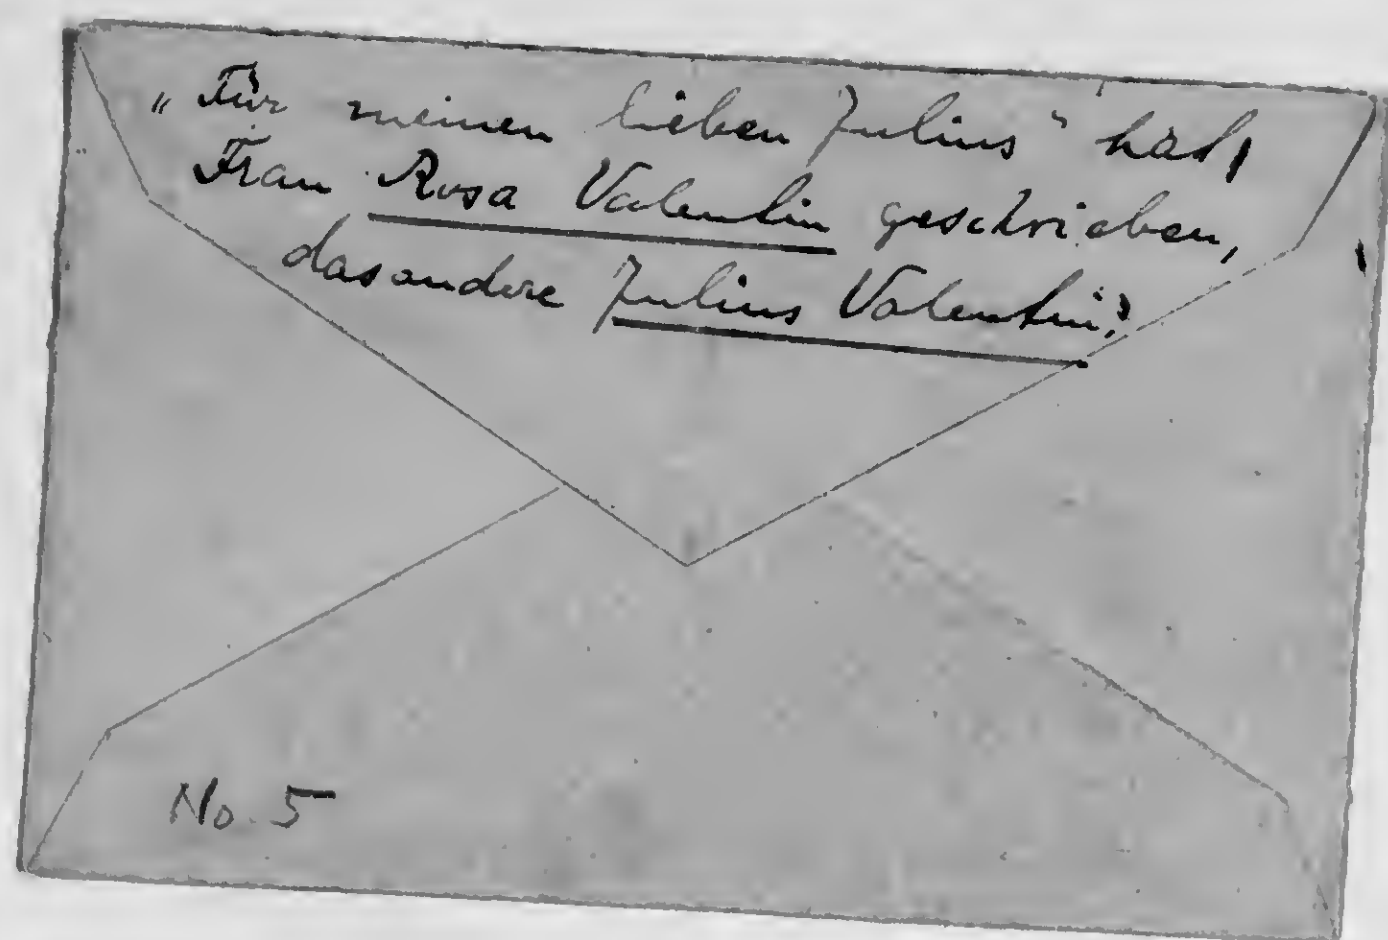 „Für meinen lieben Julius" hat
Frau Rosa Valentin geschrieben,
das andere Julius Valentin?
No. 5